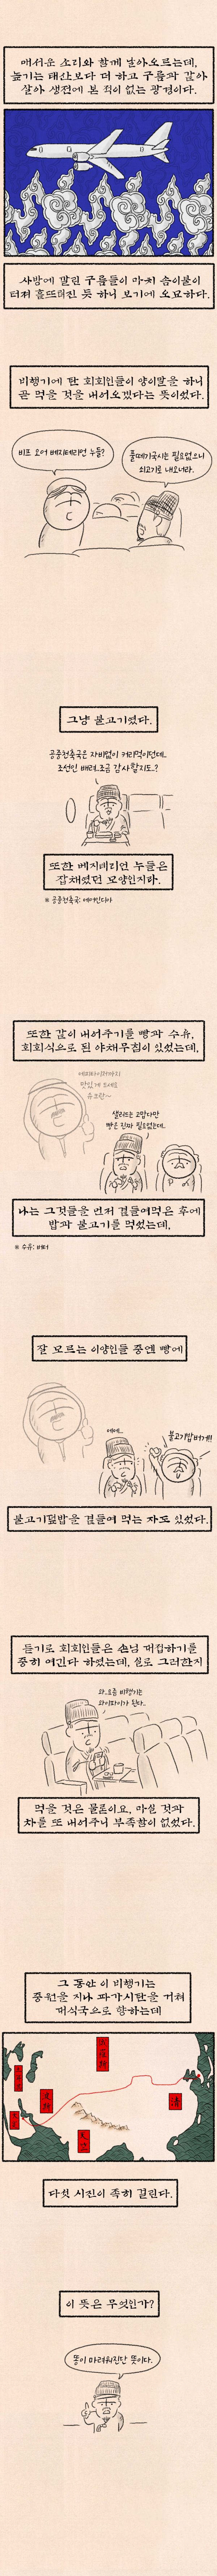 매서운 소리와 함께 날아오르는데,
높기는 태산보다 더 하고 구름과 같아
살아 생전에 본 적이 없는 광경이다.
사방에 깔린 구름들이 마치 솜이불이
터져 흩뜨려진 듯 하니 보기에 오묘하다.
비행기에 탄 회회인들이 양이말을 하니
곧 먹을 것을 내어오겠다는 뜻이었다.
비프 오어 베지테리언 누들?
풀때기국시는 필요없으니
쇠고기로 내오너라.
그냥 불고기였다.
공중천축국은 자비없이 커리였던데..
조선인 배려..조금 감사할지도..?
또한 베지테리언 누들은
잡채였던 모양인지라.
※ 공중천축국: 에어인디아
또한 같이 내어주기를 빵과 수유,
회회식으로 된 야채무침이 있었는데,
맛있게 드세요
샐러드는 고맙다만
빵은 진짜 필요없는데..
나는 그것들을 먼저 곁들여먹은 후에
밥과 불고기를 먹었는데,
※ 수유: 버터
잘 모르는 이양인들 중엔 빵에
에에..
불고기밥버거!!
불고기덮밥을 곁들여 먹는 자도 있었다.
듣기로 회회인들은 손님 대접하기를
중히 여긴다 하였는데, 실로 그러한지
와..요즘 비행기는
와이파이가 된다..
먹을 것은 물론이요, 마실 것과
차를 또 내어주니 부족함이 없었다.
그 동안 이 비행기는
중원을 지나 파가사탄을 거쳐
대식국으로 향하는데
清
다섯 시진이 족히 걸린다.
이 뜻은 무엇인가?
똥이 마려워진단 뜻이다.